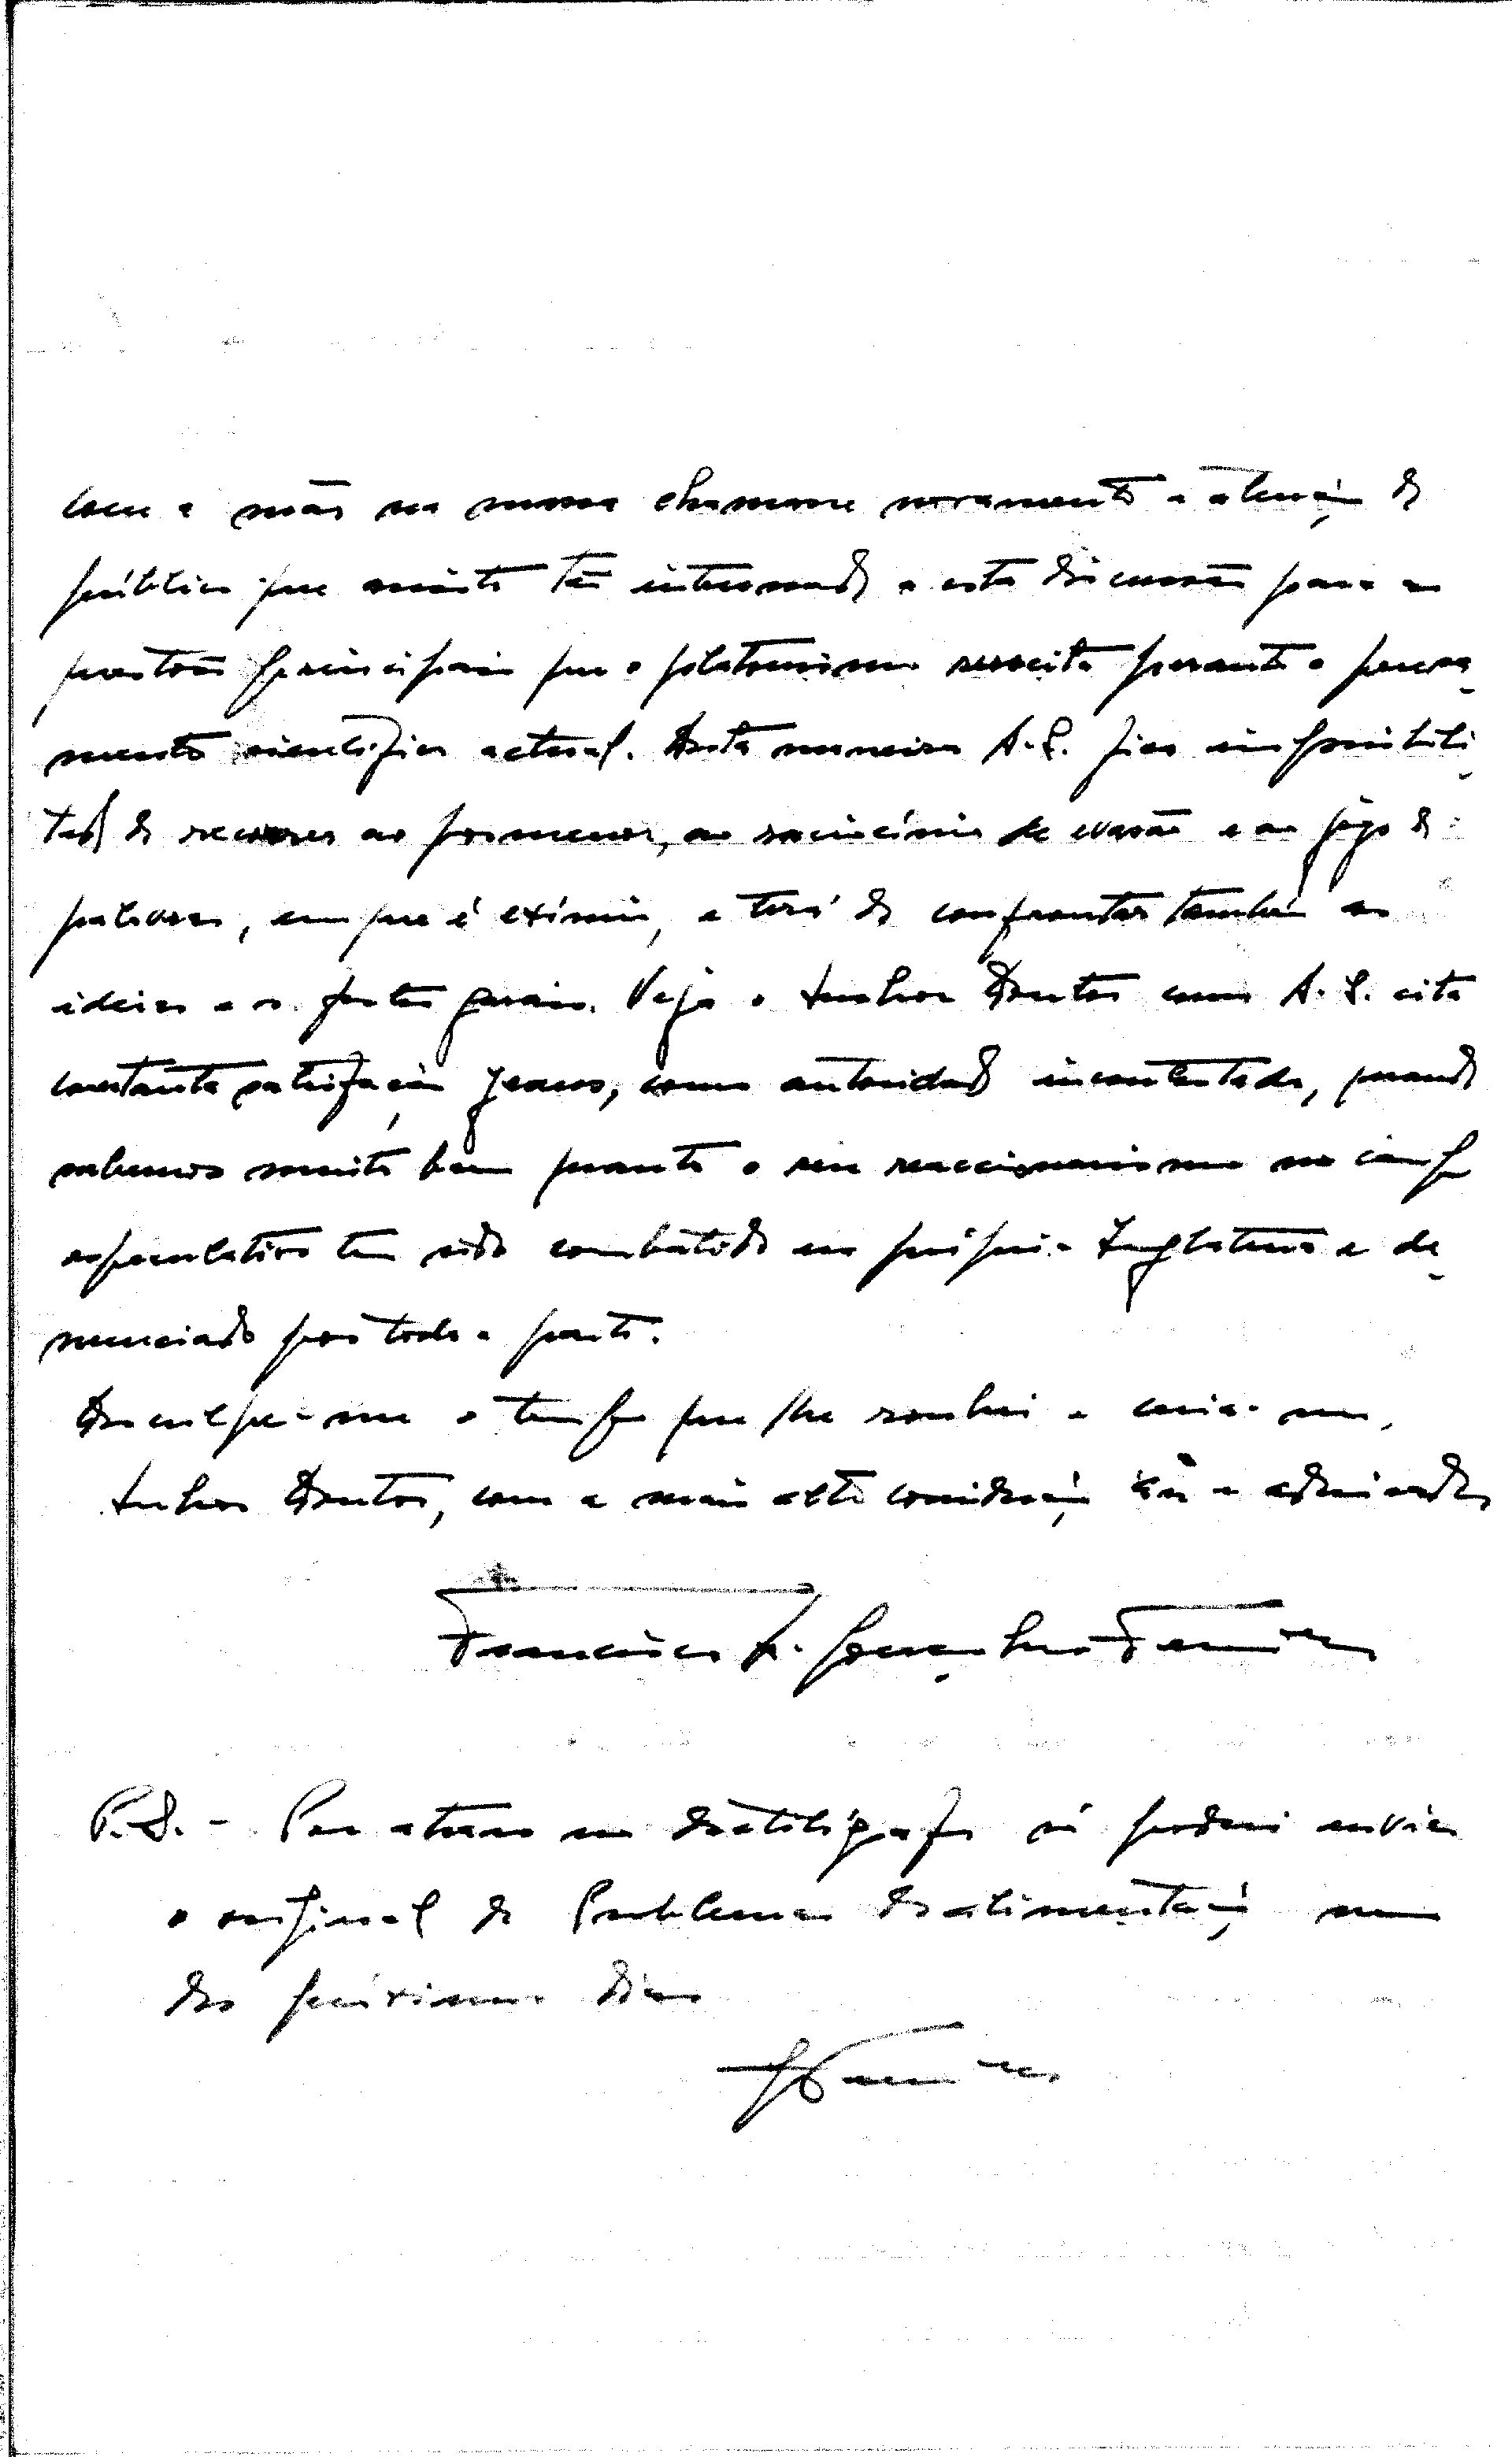 com a mão na massa chamasse novamente a atenção do
público que muito tem interessado a esta discussão para as
questões principais que o platonismo suscita perante o pensa-
mento scientífico actual. Desta maneira A.S. fica impossibili-
tado de recorrer ao pormenor, ao raciocínio de evasão e ao jôgo de
palavras, em que é exímio, e terá de confrontar também as
ideias e os factos gerais. Veja o Senhor Doutor como A.S. cita
com tanta satisfação Jeans, como autoridade incontestada, quando
sabemos muito bem quanto o seu reaccionarismo no campo
especulativo tem sido combatido na própria Inglaterra e de-
nunciado por toda a parte.
Desculpe-me o tempo que lhe roubei e creia-me,
Senhor Doutor, com a mais alta consideração seu admirador
Francisco F.
P.S. - Por atraso na dactilógrafa só poderei enviar
o original do Problema da alimentação num
dos próximos dias